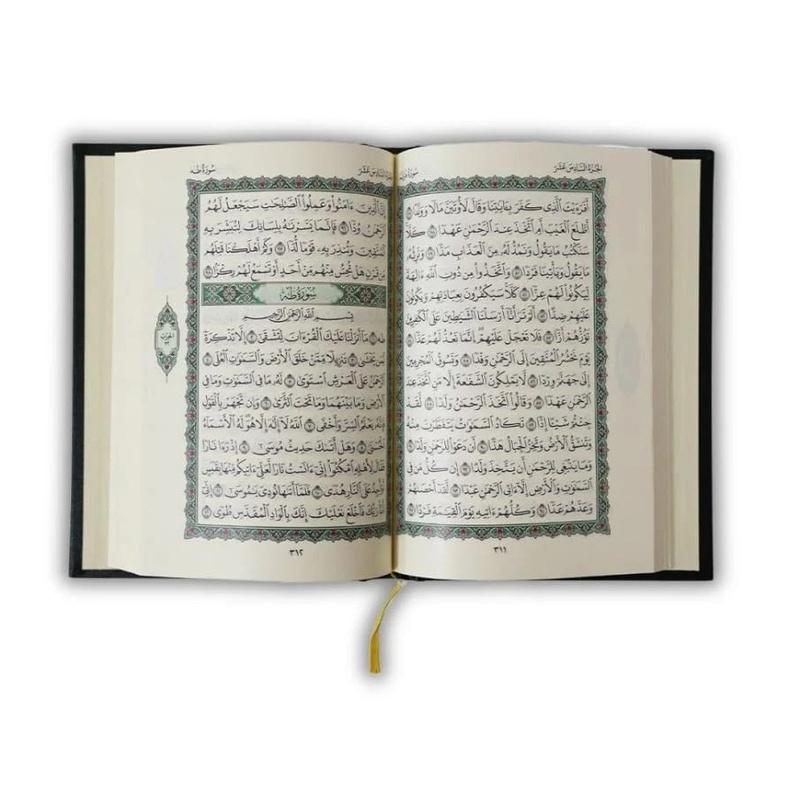 الجزء السادس عشر
سورة مريم
أَفَرَءَيْتَ ٱلَّذِى كَفَرَ بِـَٔايَـٰتِنَا وَقَالَ لَأُوتَيَنَّ مَالًا وَوَلَدًا ٧٧
أَطَّلَعَ ٱلْغَيْبَ أَمِ ٱتَّخَذَ عِندَ ٱلرَّحْمَـٰنِ عَهْدًا ٧٨ كَلَّا
سَنَكْتُبُ مَا يَقُولُ وَنَمُدُّ لَهُۥ مِنَ ٱلْعَذَابِ مَدًّا ٧٩ وَنَرِثُهُۥ
مَا يَقُولُ وَيَأْتِينَا فَرْدًا ٨٠ وَٱتَّخَذُوا۟ مِن دُونِ ٱللَّهِ ءَالِهَةً
لِّيَكُونُوا۟ لَهُمْ عِزًّا ٨١ كَلَّا سَيَكْفُرُونَ بِعِبَادَتِهِمْ وَيَكُونُونَ
عَلَيْهِمْ ضِدًّا ٨٢ أَلَمْ تَرَ أَنَّآ أَرْسَلْنَا ٱلشَّيَـٰطِينَ عَلَى ٱلْكَـٰفِرِينَ
تَؤُزُّهُمْ أَزًّا ٨٣ فَلَا تَعْجَلْ عَلَيْهِمْ إِنَّمَا نَعُدُّ لَهُمْ عَدًّا ٨٤
يَوْمَ نَحْشُرُ ٱلْمُتَّقِينَ إِلَى ٱلرَّحْمَـٰنِ وَفْدًا ٨٥ وَنَسُوقُ ٱلْمُجْرِمِينَ
إِلَىٰ جَهَنَّمَ وِرْدًا ٨٦ لَّا يَمْلِكُونَ ٱلشَّفَـٰعَةَ إِلَّا مَنِ ٱتَّخَذَ عِندَ
ٱلرَّحْمَـٰنِ عَهْدًا ٨٧ وَقَالُوا۟ ٱتَّخَذَ ٱلرَّحْمَـٰنُ وَلَدًا ٨٨ لَّقَدْ
جِئْتُمْ شَيْـًٔا إِدًّا ٨٩ تَكَادُ ٱلسَّمَـٰوَٰتُ يَتَفَطَّرْنَ مِنْهُ
وَتَنشَقُّ ٱلْأَرْضُ وَتَخِرُّ ٱلْجِبَالُ هَدًّا ٩٠ أَن دَعَوْا۟ لِلرَّحْمَـٰنِ وَلَدًا ٩١
وَمَا يَنۢبَغِى لِلرَّحْمَـٰنِ أَن يَتَّخِذَ وَلَدًا ٩٢ إِن كُلُّ مَن فِى
ٱلسَّمَـٰوَٰتِ وَٱلْأَرْضِ إِلَّآ ءَاتِى ٱلرَّحْمَـٰنِ عَبْدًا ٩٣ لَّقَدْ أَحْصَىٰهُمْ
وَعَدَّهُمْ عَدًّا ٩٤ وَكُلُّهُمْ ءَاتِيهِ يَوْمَ ٱلْقِيَـٰمَةِ فَرْدًا ٩٥
٣١١
الجزء السادس عشر
سورة طه
إِنَّ ٱلَّذِينَ ءَامَنُوا۟ وَعَمِلُوا۟ ٱلصَّـٰلِحَـٰتِ سَيَجْعَلُ لَهُمُ
ٱلرَّحْمَـٰنُ وُدًّا ٩٦ فَإِنَّمَا يَسَّرْنَـٰهُ بِلِسَانِكَ لِتُبَشِّرَ بِهِ
ٱلْمُتَّقِينَ وَتُنذِرَ بِهِۦ قَوْمًا لُّدًّا ٩٧ وَكَمْ أَهْلَكْنَا قَبْلَهُم
مِّن قَرْنٍ هَلْ تُحِسُّ مِنْهُم مِّنْ أَحَدٍ أَوْ تَسْمَعُ لَهُمْ رِكْزًۢا ٩٨
سورة طه
بِسْمِ ٱللَّهِ ٱلرَّحْمَـٰنِ ٱلرَّحِيمِ
طه ١ مَآ أَنزَلْنَا عَلَيْكَ ٱلْقُرْءَانَ لِتَشْقَىٰٓ ٢ إِلَّا تَذْكِرَةً
لِّمَن يَخْشَىٰ ٣ تَنزِيلًا مِّمَّنْ خَلَقَ ٱلْأَرْضَ وَٱلسَّمَـٰوَٰتِ ٱلْعُلَى ٤
ٱلرَّحْمَـٰنُ عَلَى ٱلْعَرْشِ ٱسْتَوَىٰ ٥ لَهُۥ مَا فِى ٱلسَّمَـٰوَٰتِ وَمَا فِى
ٱلْأَرْضِ وَمَا بَيْنَهُمَا وَمَا تَحْتَ ٱلثَّرَىٰ ٦ وَإِن تَجْهَرْ بِٱلْقَوْلِ
فَإِنَّهُۥ يَعْلَمُ ٱلسِّرَّ وَأَخْفَى ٧ ٱللَّهُ لَآ إِلَـٰهَ إِلَّا هُوَ لَهُ ٱلْأَسْمَآءُ
ٱلْحُسْنَىٰ ٨ وَهَلْ أَتَىٰكَ حَدِيثُ مُوسَىٰٓ ٩ إِذْ رَءَا نَارًا
فَقَالَ لِأَهْلِهِ ٱمْكُثُوٓا۟ إِنِّىٓ ءَانَسْتُ نَارًا لَّعَلِّىٓ ءَاتِيكُم مِّنْهَا بِقَبَسٍ
أَوْ أَجِدُ عَلَى ٱلنَّارِ هُدًى ١٠ فَلَمَّآ أَتَىٰهَا نُودِىَ يَـٰمُوسَىٰٓ ١١ إِنِّىٓ
أَنَا۠ رَبُّكَ فَٱخْلَعْ نَعْلَيْكَ إِنَّكَ بِٱلْوَادِ ٱلْمُقَدَّسِ طُوًى ١٢
٣١٢